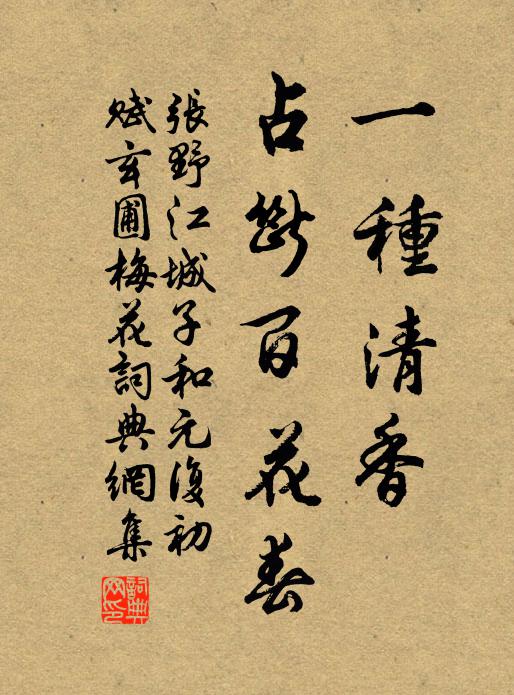 一種清香
占斷百花春
張野江城子和元復初
賦玄圃梅花詞典網集
詞典網印